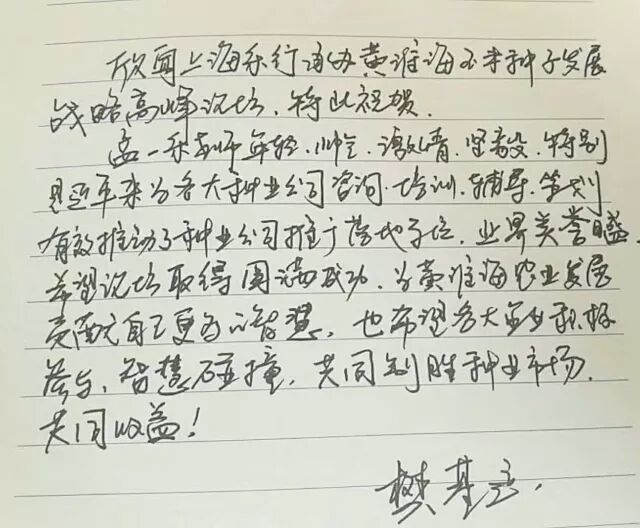 欣闻上海禾行承办黄淮海玉米种子发展
战略高峰论坛,特此祝贺.
孟一禾老师年轻.帅气.激情.坚毅.特别
是近年来为各大种业公司咨询.培训.辅导.策划
有效推动了种业公司推广落地工作.业界美誉
希望论坛取得圆满成功.为黄淮海农业发展
贡献自己更多的智慧.也希望各大企业积极
参与.智慧碰撞.共同制胜种业市场.
共同收益!
樊基